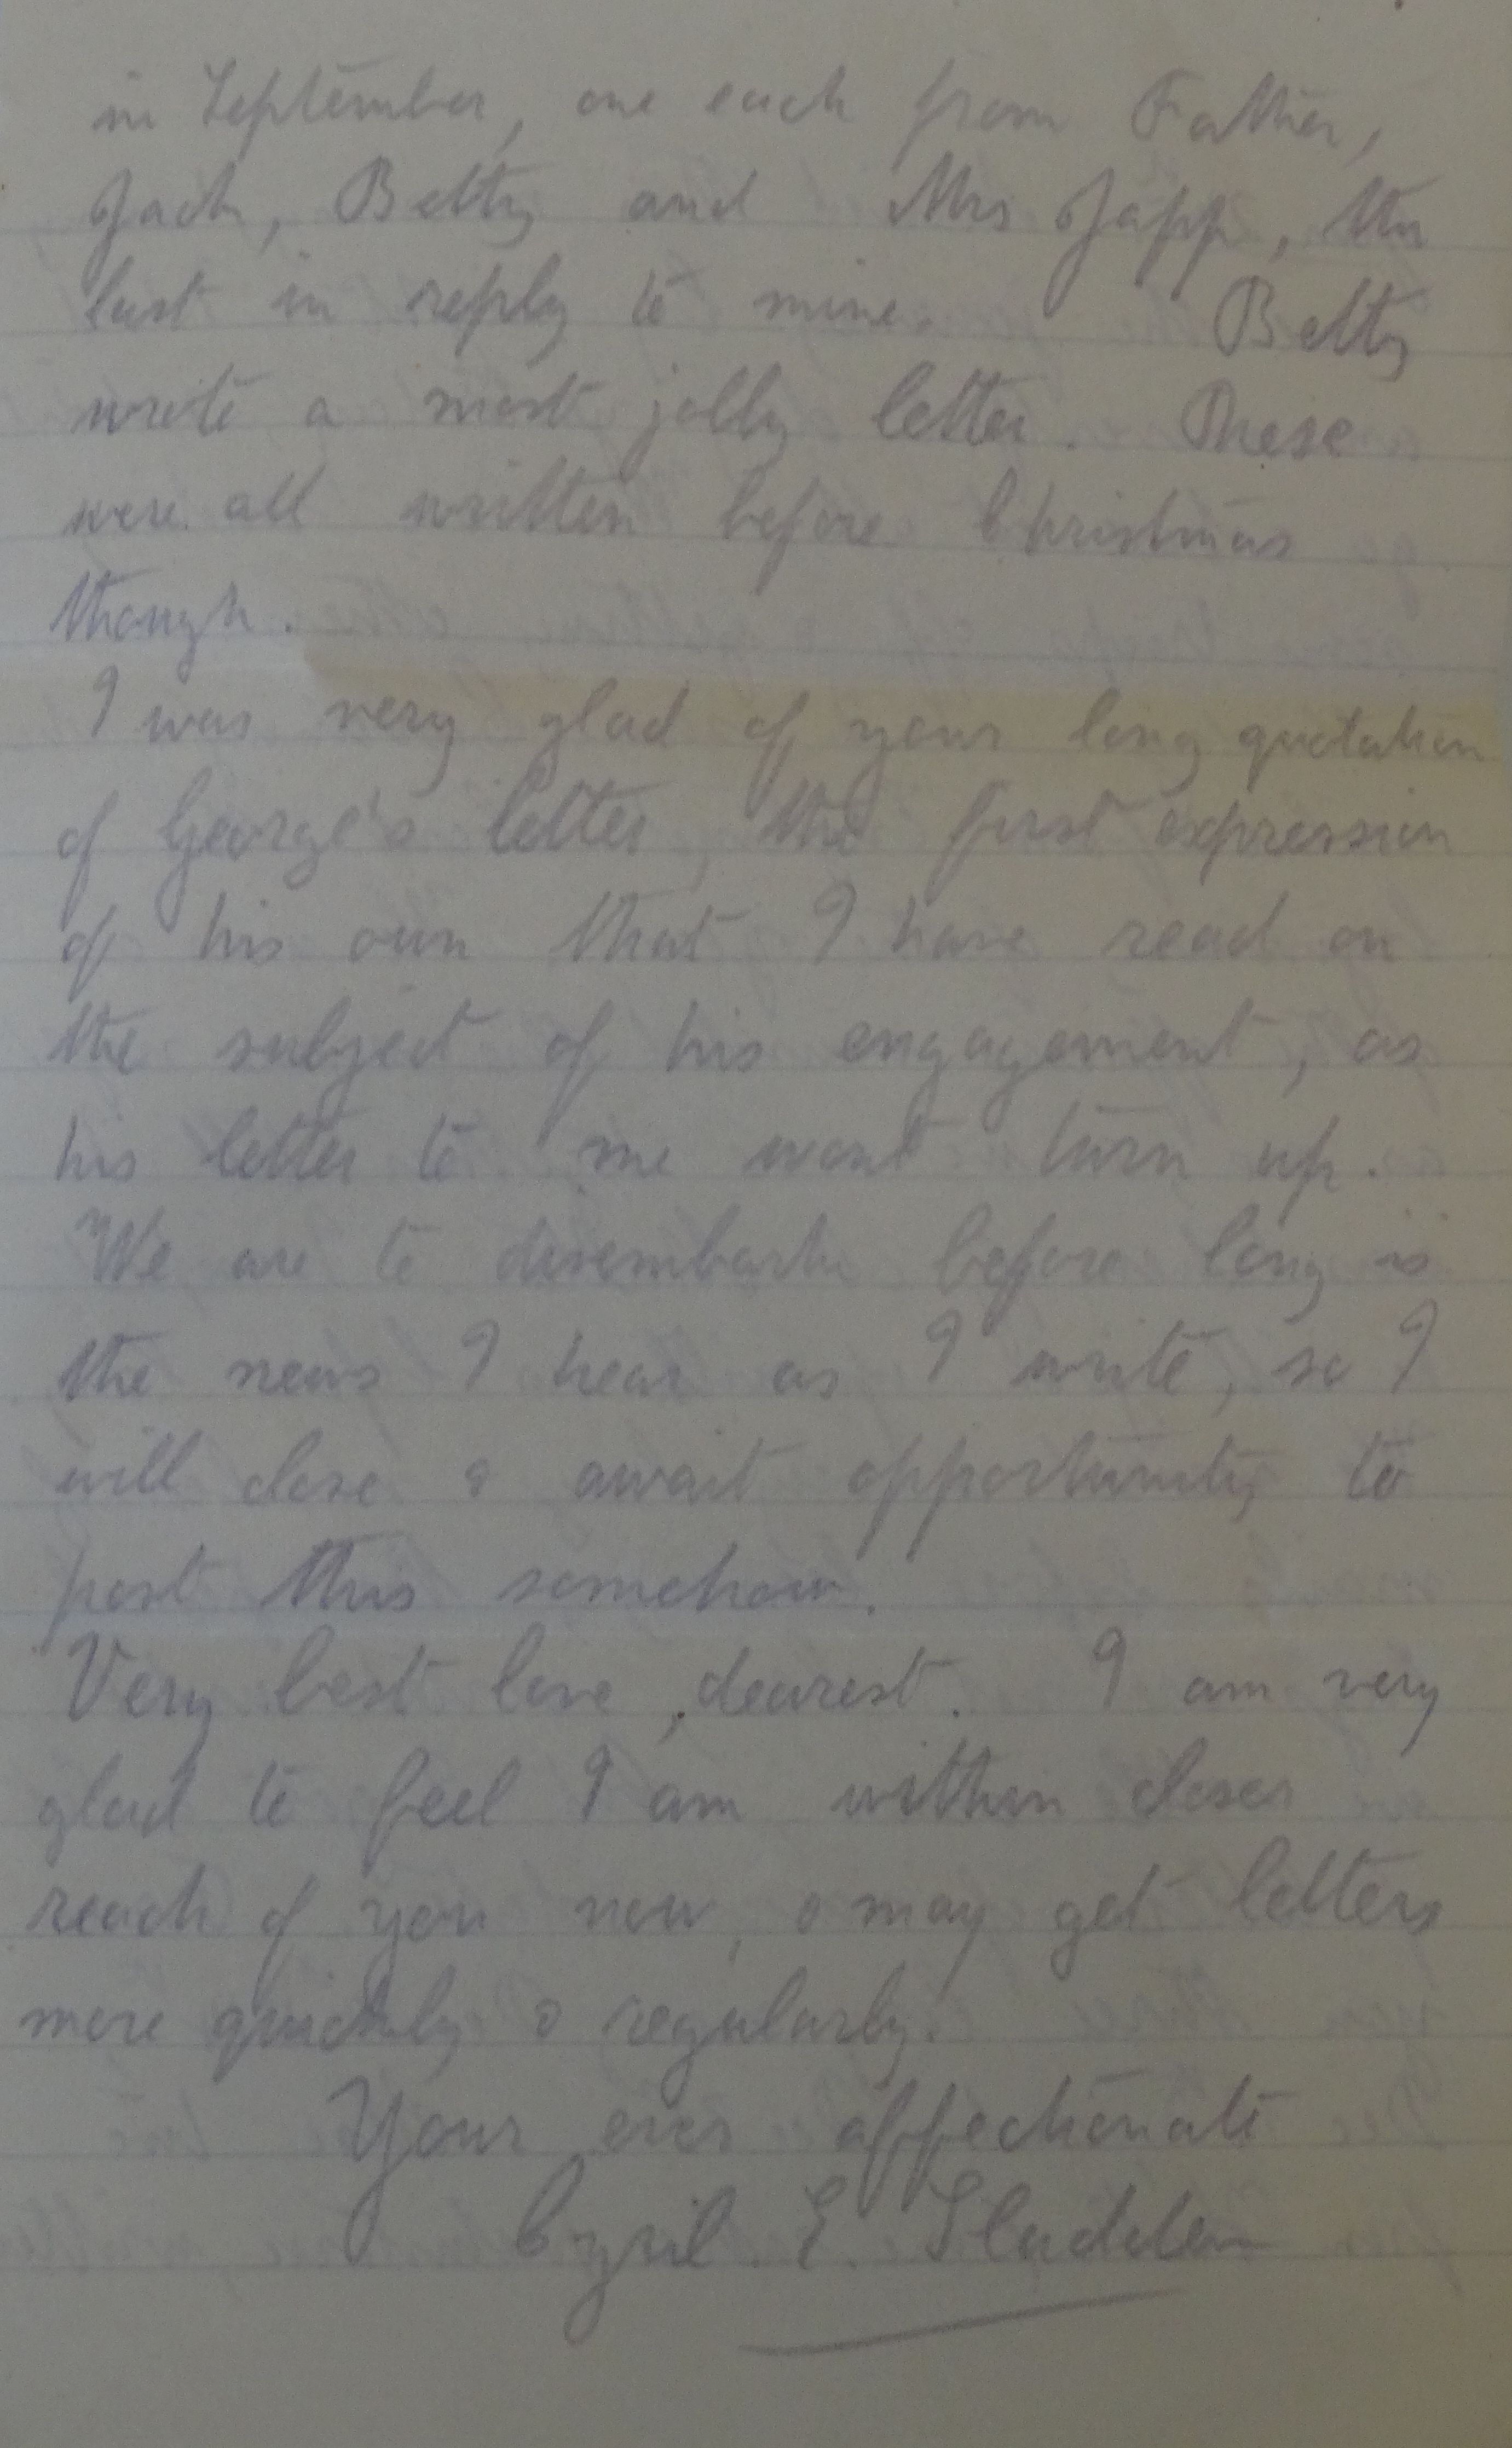 in September, one each from Father,
Jack, Betty and Mrs Japp, the
last in reply to mine. Betty
wrote a most jolly letter. These
were all written before Christmas
though.
I was very glad of your long quotation
of George's letter, the first expression
of his own that I have read on
the subject of his engagement, as
his letter to me wont turn up.
We are to disembark before long is
the news I hear as I write, so I
will close & await opportunity to
post this somehow.
Very best love, dearest. I am very
glad to feel I am within closer
reach of you now, & may get letters
more quickly & regularly.
Your ever affectionate
Cyril E Sladden